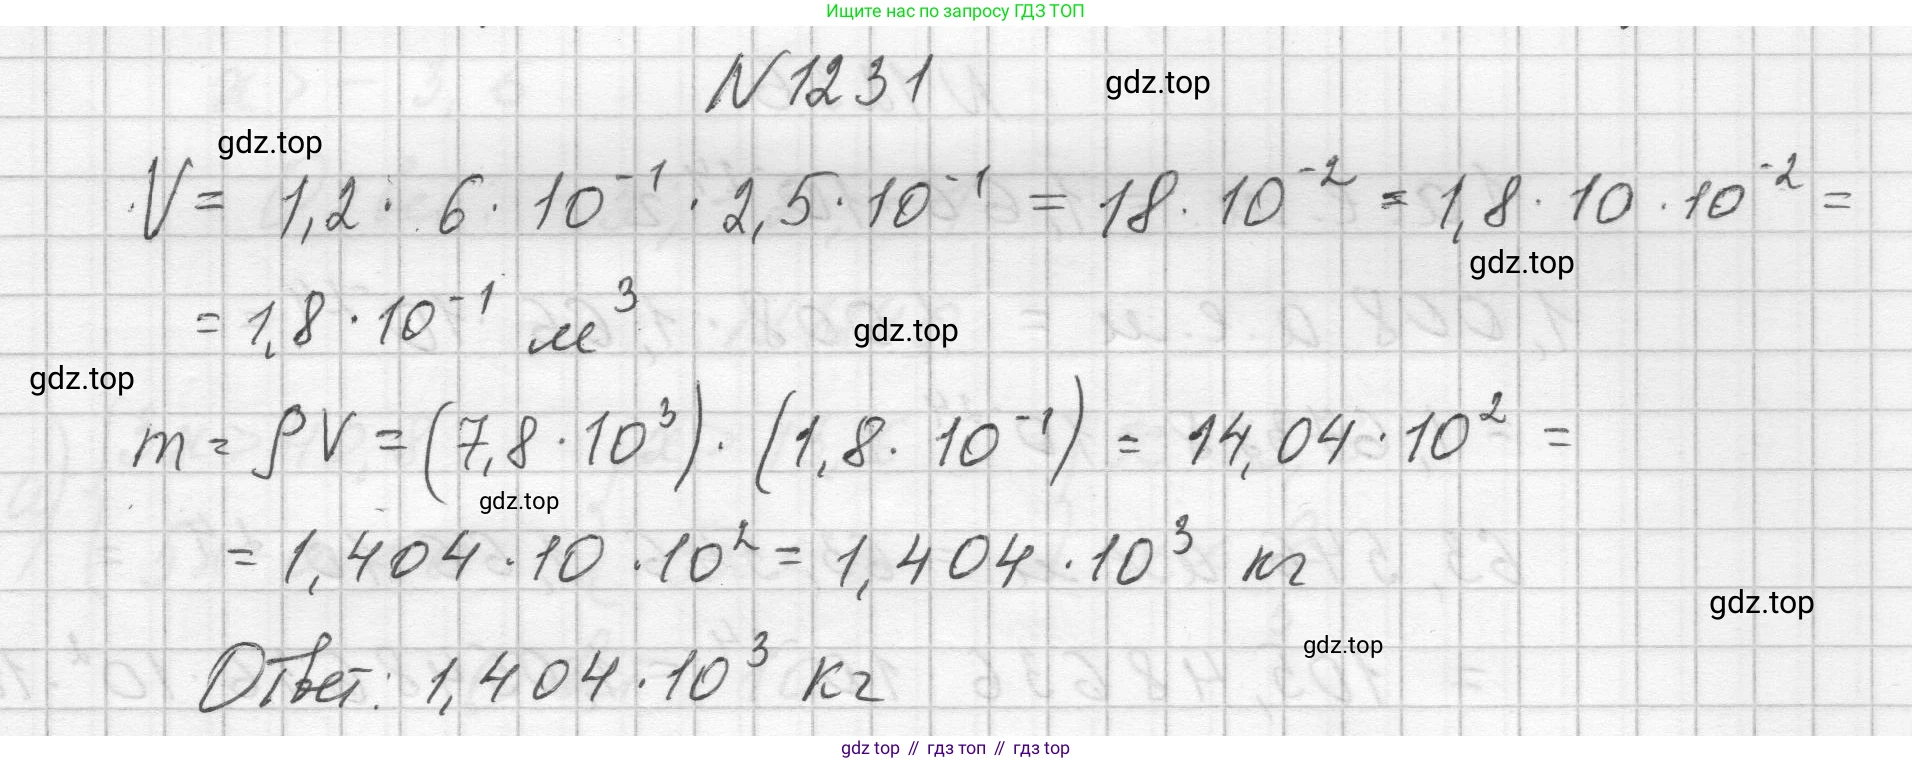 Ищите нас по запросу ГДЗ ТОП
N 1231
gdz.top
gdz.top
V = 1,2 · 6 · 10⁻¹ · 2,5 · 10⁻¹ = 18 · 10⁻² = 1,8 · 10 · 10⁻² =
gdz.top
= 1,8 · 10⁻¹ м³
gdz.top
gdz.top
m = ρV = (7,8 · 10³) · (1,8 · 10⁻¹) = 14,04 · 10² =
gdz.top
= 1,404 · 10 · 10² = 1,404 · 10³ кг
gdz.top
gdz.top
Ответ: 1,404 · 10³ кг
gdz top // гдз топ // гдз top